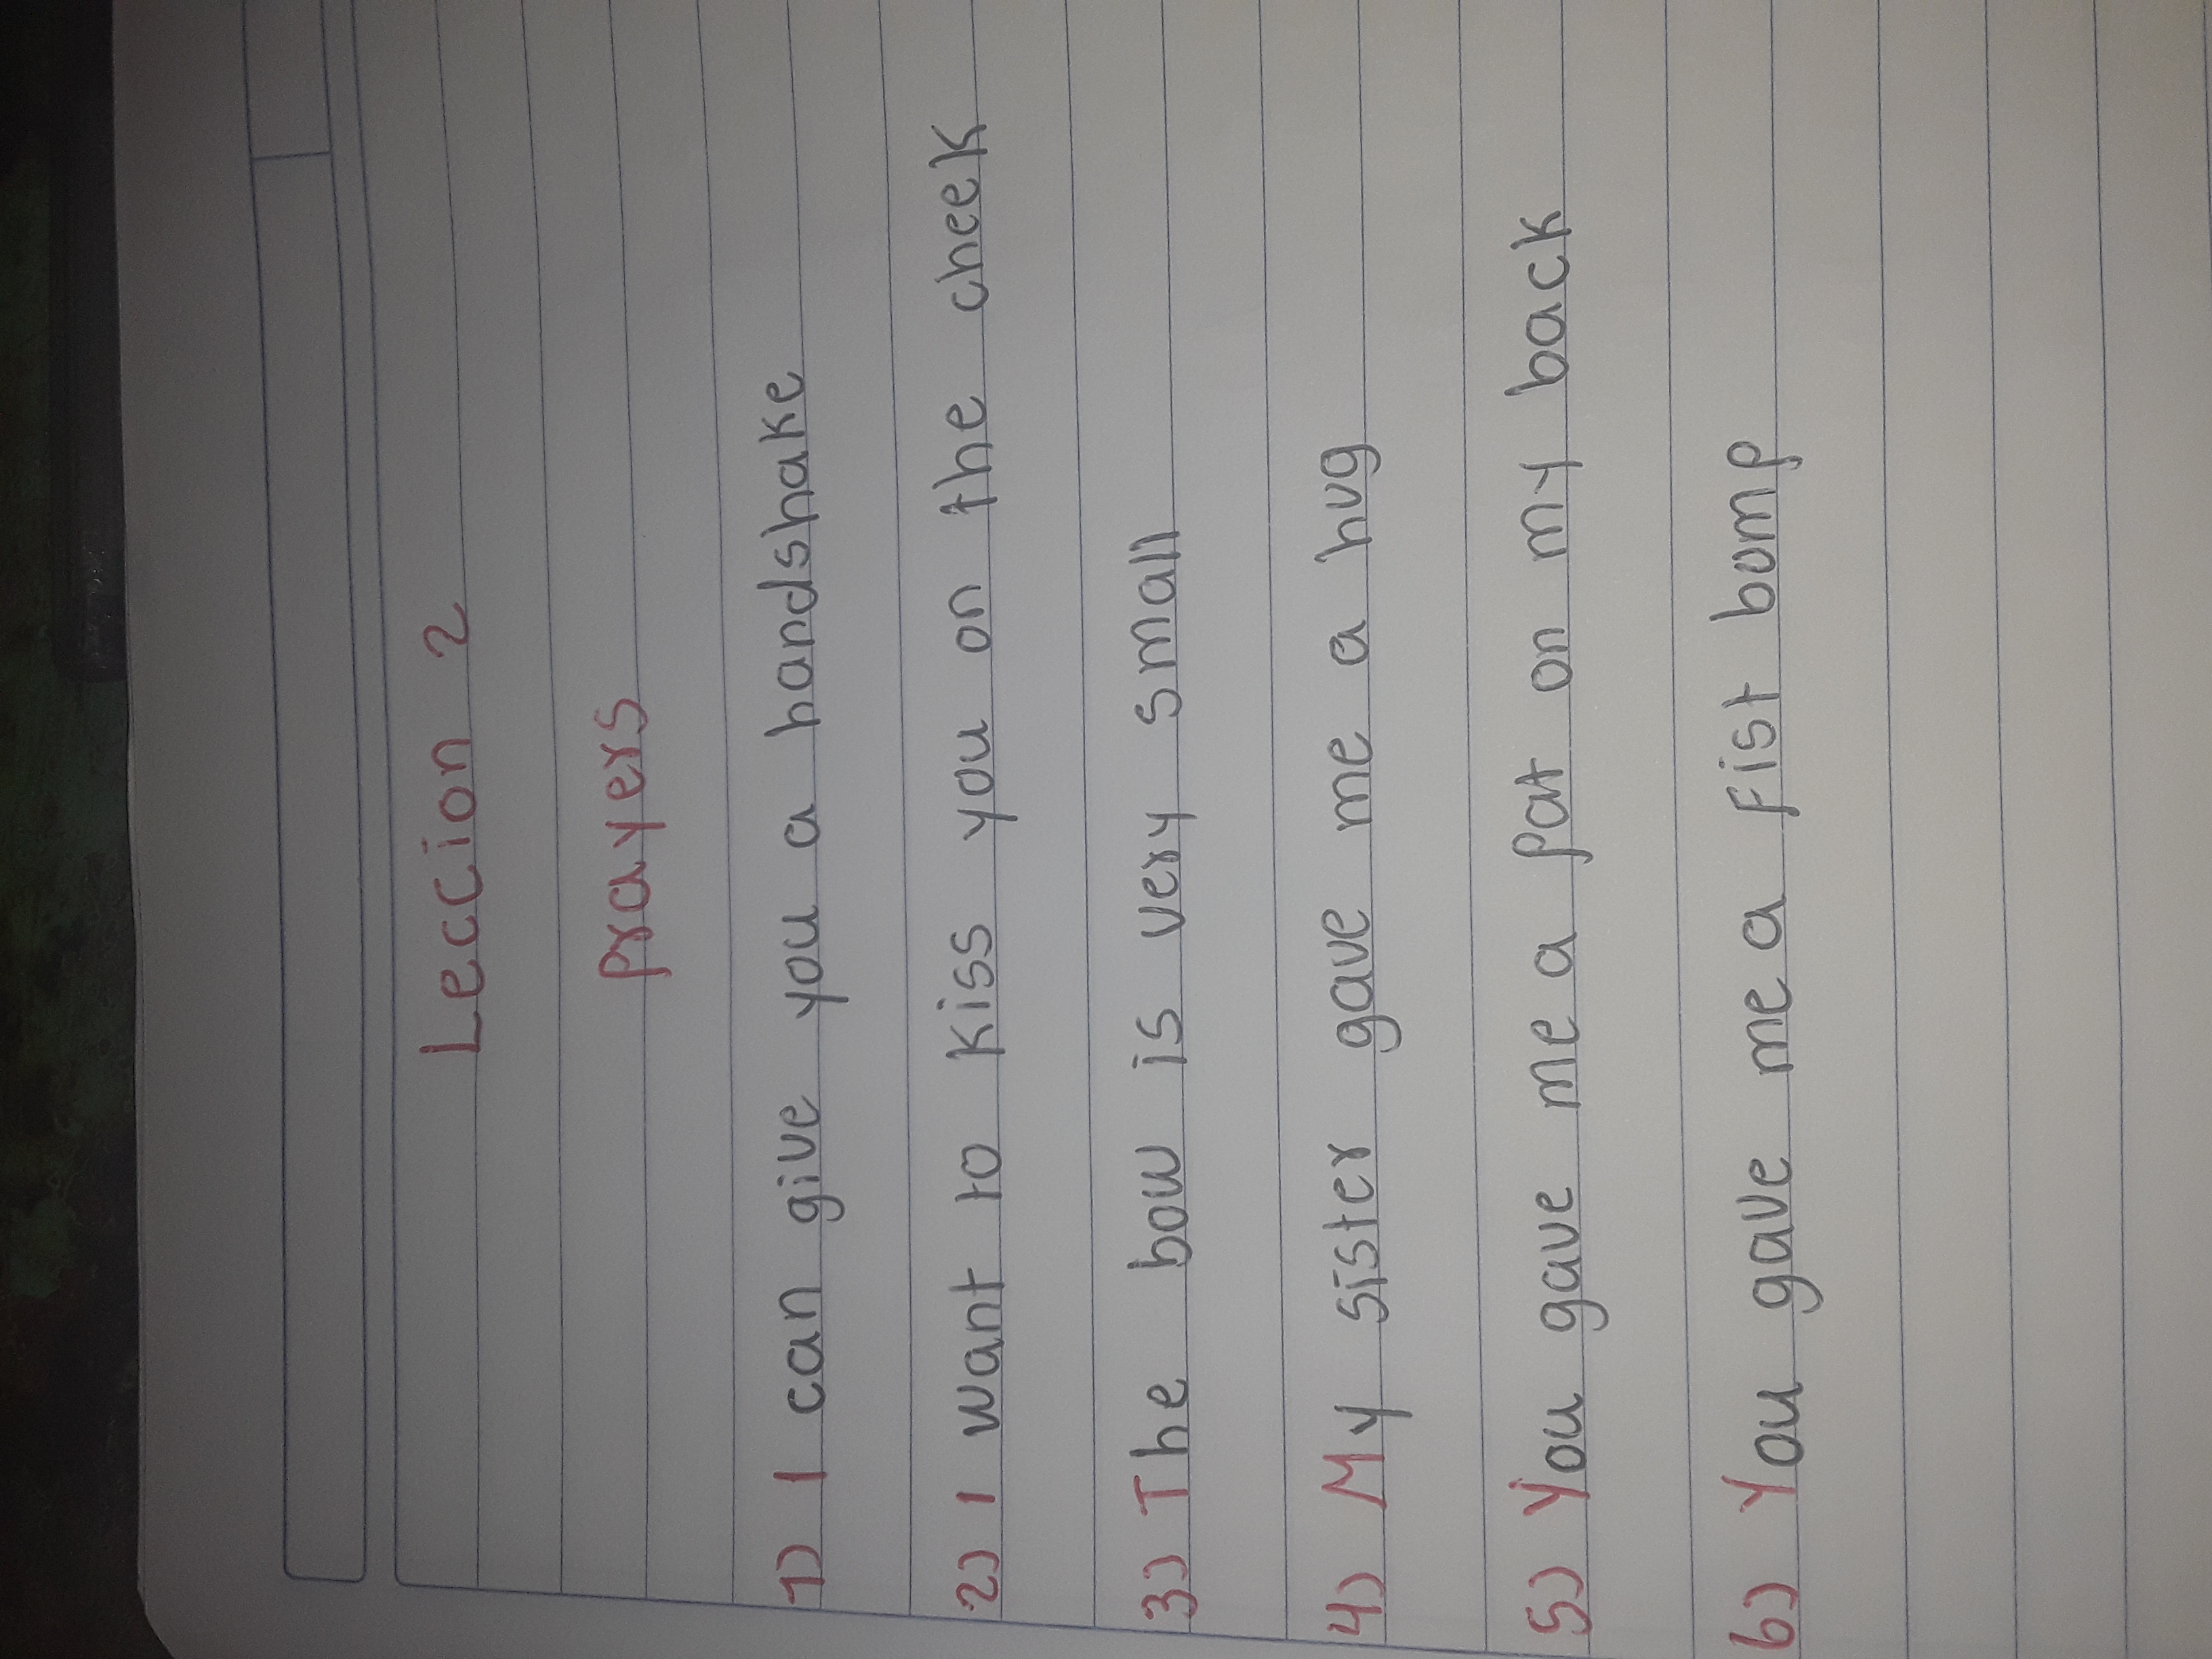 Leccion 2
prayers
1) I can give you a handshake
2) I want to kiss you on the cheek
3) The bow is very small
4) My sister gave me a hug
5) You gave me a pat on my back
6) You gave me a Fist bump